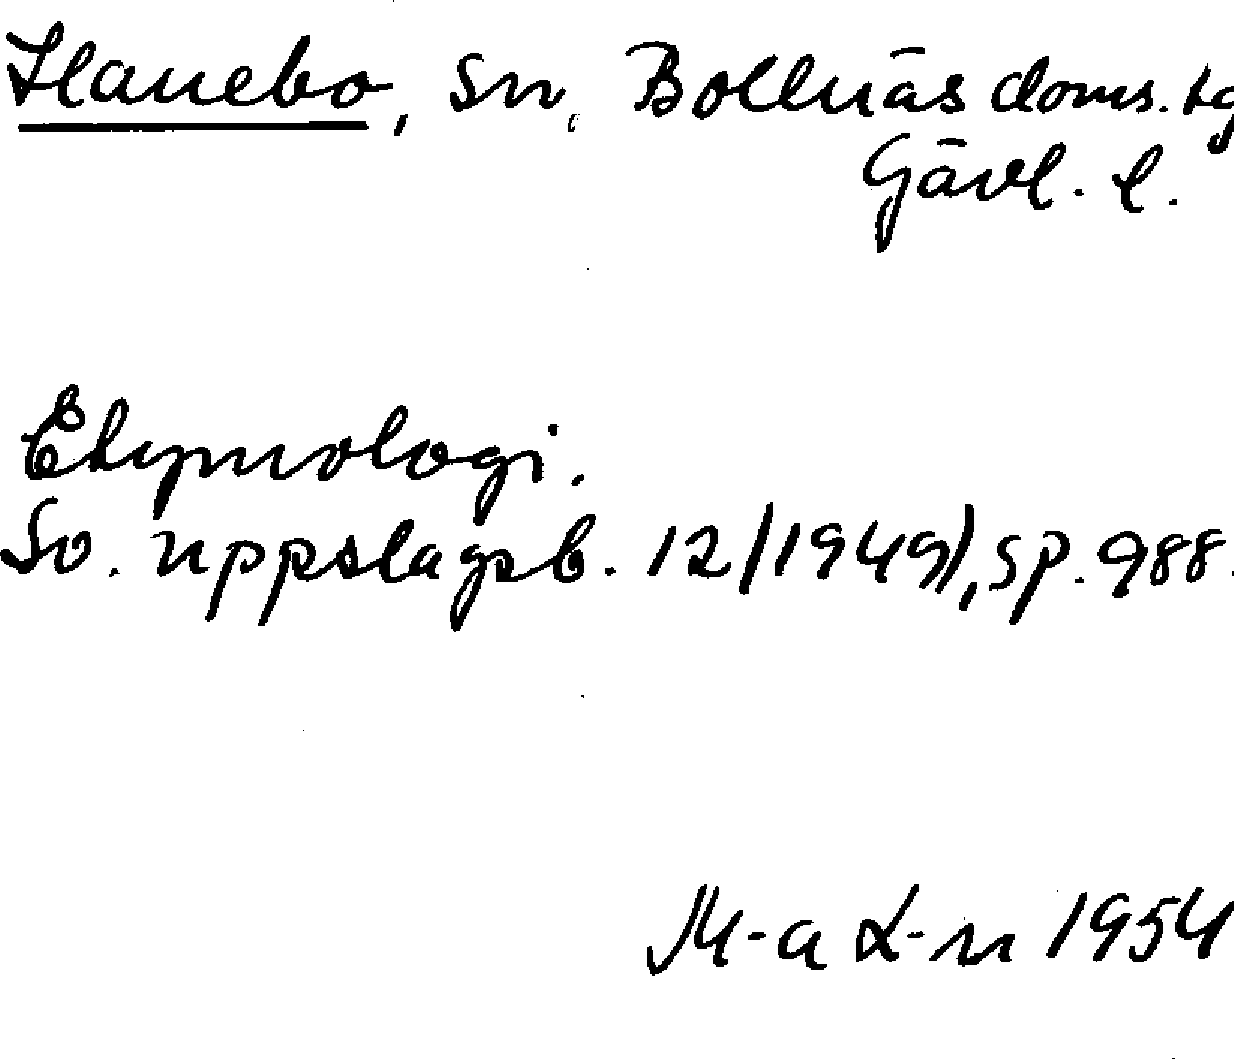 Hanebo, sn, Bollnäs doms. tg
Gävl. l.
Etymologi.
Sv. uppslagsb. 12/1949), sp. 988.
M-a L-n 1954